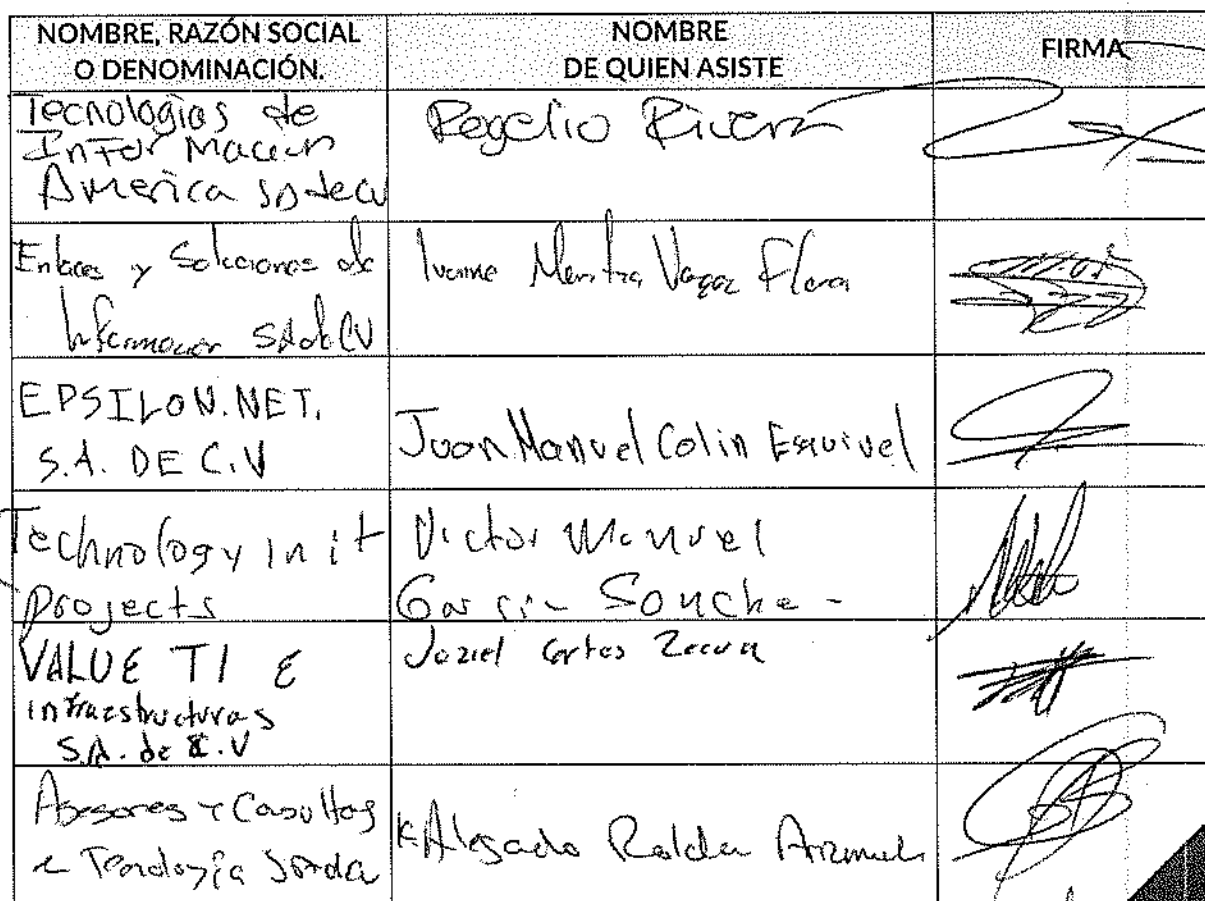 NOMBRE, RAZÓN SOCIAL
O DENOMINACIÓN.
NOMBRE
DE QUIEN ASISTE
FIRMA
Tecnologias de
Información
America SA de CV
Rogelio Rivera
Enlaces y Soluciones de
Información SA de CV
Ivonne Vargas Flores
EPSILON.NET.
S.A. DE C.V
Juan Manuel Colin Esquivel
Technology in it
projects
Victor Manuel
Garcia Sanche
VALUE TI E
infraestructuras
S.A. de C.V
Cortes
Asesores
Tecnologia SA de CV